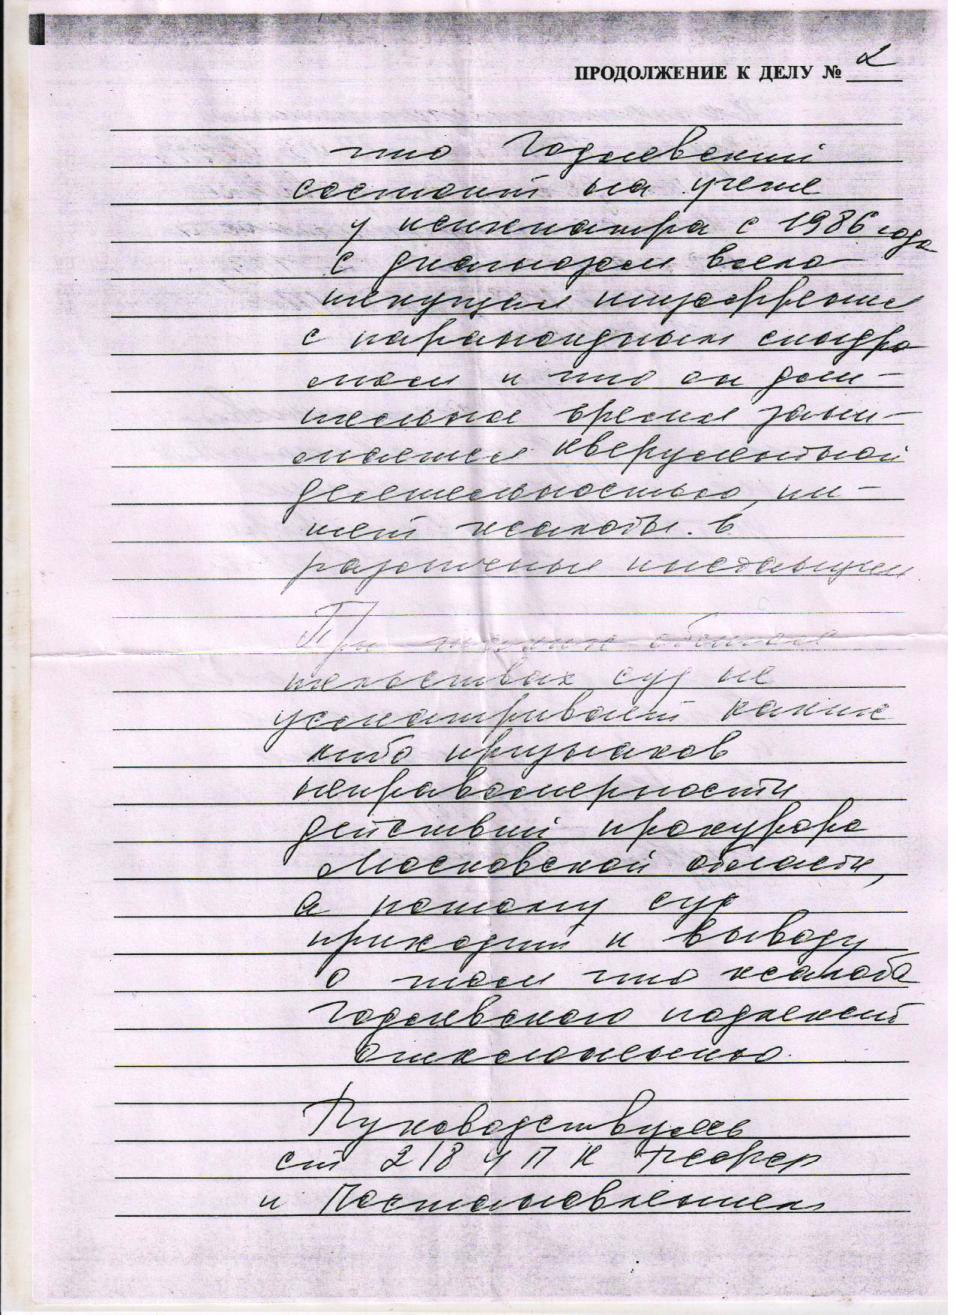 ПРОДОЛЖЕНИЕ К ДЕЛУ № 2
что
состоит на учете
у психиатра с 1986 года
с диагнозом вяло
текущая шизофрения
с параноидным синдро
мом и что он дли-
тельное время зани-
мается кверулентной
деятельностью, пи-
шет жалобы в
различные инстанции
При таких обстоя
тельствах суд не
усматривает каких
либо признаков
неправомерности
действий прокурора
Московской области,
а потому суд
приходит к выводу
о том что жалоба
подлежит
отклонению.
Руководствуясь
ст 218 УПК РСФСР
и Постановлением